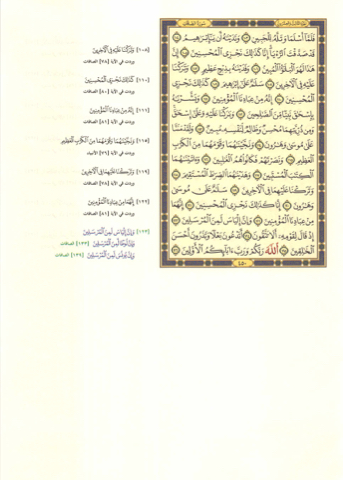 فَلَمَّا أَسْلَمَا وَتَلَّهُ لِلْجَبِينِ ۝ وَنَادَيْنَاهُ أَنْ يَا إِبْرَاهِيمُ ۝
قَدْ صَدَّقْتَ الرُّؤْيَا إِنَّا كَذَلِكَ نَجْزِي الْمُحْسِنِينَ ۝ إِنَّ
هَذَا لَهُوَ الْبَلَاءُ الْمُبِينُ ۝ وَفَدَيْنَاهُ بِذِبْحٍ عَظِيمٍ ۝ وَتَرَكْنَا
عَلَيْهِ فِي الْآخِرِينَ ۝ سَلَامٌ عَلَى إِبْرَاهِيمَ ۝ كَذَلِكَ نَجْزِي
الْمُحْسِنِينَ ۝ إِنَّهُ مِنْ عِبَادِنَا الْمُؤْمِنِينَ ۝ وَبَشَّرْنَاهُ
بِإِسْحَاقَ نَبِيًّا مِنَ الصَّالِحِينَ ۝ وَبَارَكْنَا عَلَيْهِ وَعَلَى إِسْحَاقَ
وَمِنْ ذُرِّيَّتِهِمَا مُحْسِنٌ وَظَالِمٌ لِنَفْسِهِ مُبِينٌ ۝ وَلَقَدْ مَنَنَّا
عَلَى مُوسَى وَهَارُونَ ۝ وَنَجَّيْنَاهُمَا وَقَوْمَهُمَا مِنَ الْكَرْبِ
الْعَظِيمِ ۝ وَنَصَرْنَاهُمْ فَكَانُوا هُمُ الْغَالِبِينَ ۝ وَآتَيْنَاهُمَا
الْكِتَابَ الْمُسْتَبِينَ ۝ وَهَدَيْنَاهُمَا الصِّرَاطَ الْمُسْتَقِيمَ ۝
وَتَرَكْنَا عَلَيْهِمَا فِي الْآخِرِينَ ۝ سَلَامٌ عَلَى مُوسَى
وَهَارُونَ ۝ إِنَّا كَذَلِكَ نَجْزِي الْمُحْسِنِينَ ۝ إِنَّهُمَا
مِنْ عِبَادِنَا الْمُؤْمِنِينَ ۝ وَإِنَّ إِلْيَاسَ لَمِنَ الْمُرْسَلِينَ ۝
إِذْ قَالَ لِقَوْمِهِ أَلَا تَتَّقُونَ ۝ أَتَدْعُونَ بَعْلًا وَتَذَرُونَ أَحْسَنَ
الْخَالِقِينَ ۝ اللَّهَ رَبَّكُمْ وَرَبَّ آبَائِكُمُ الْأَوَّلِينَ ۝
٤٥٠
[١٠٨] وَتَرَكْنَا عَلَيْهِ فِي الْآخِرِينَ
وردت في الآية [٧٨] الصافات
[١١٠] كَذَلِكَ نَجْزِي الْمُحْسِنِينَ
وردت في الآية [٨٠] الصافات
[١١١] إِنَّهُ مِنْ عِبَادِنَا الْمُؤْمِنِينَ
وردت في الآية [٨١] الصافات
[١١٥] وَنَجَّيْنَاهُمَا وَقَوْمَهُمَا مِنَ الْكَرْبِ الْعَظِيمِ
وردت في الآية [٧٦] الأنبياء
[١١٩] وَتَرَكْنَا عَلَيْهِمَا فِي الْآخِرِينَ
وردت في الآية [٧٨] الصافات
[١٢٢] إِنَّهُمَا مِنْ عِبَادِنَا الْمُؤْمِنِينَ
وردت في الآية [٨١] الصافات
[١٢٣] وَإِنَّ إِلْيَاسَ لَمِنَ الْمُرْسَلِينَ
وَإِنَّ لُوطًا لَمِنَ الْمُرْسَلِينَ [١٣٣] الصافات
وَإِنَّ يُونُسَ لَمِنَ الْمُرْسَلِينَ [١٣٩] الصافات